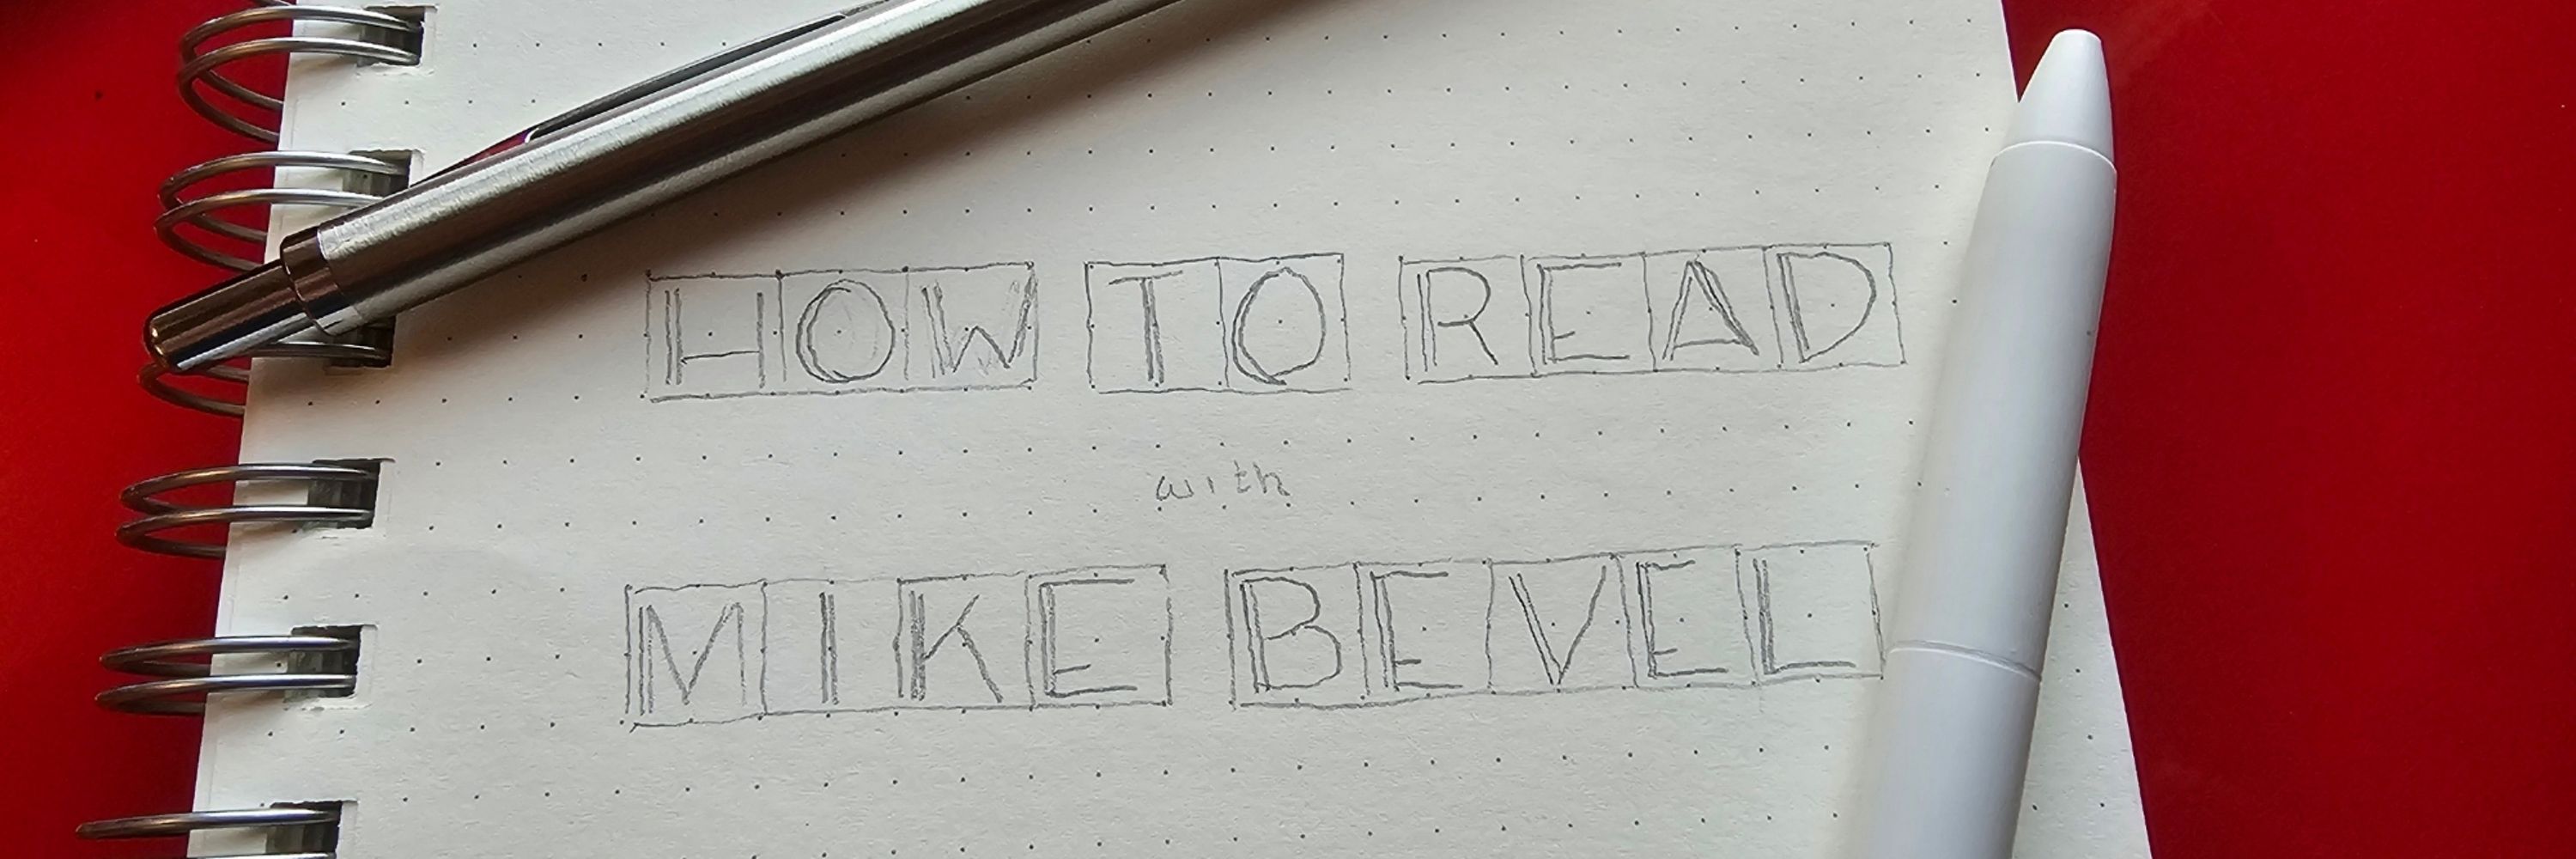 HOW TO READ
with
MIKE BEVEL